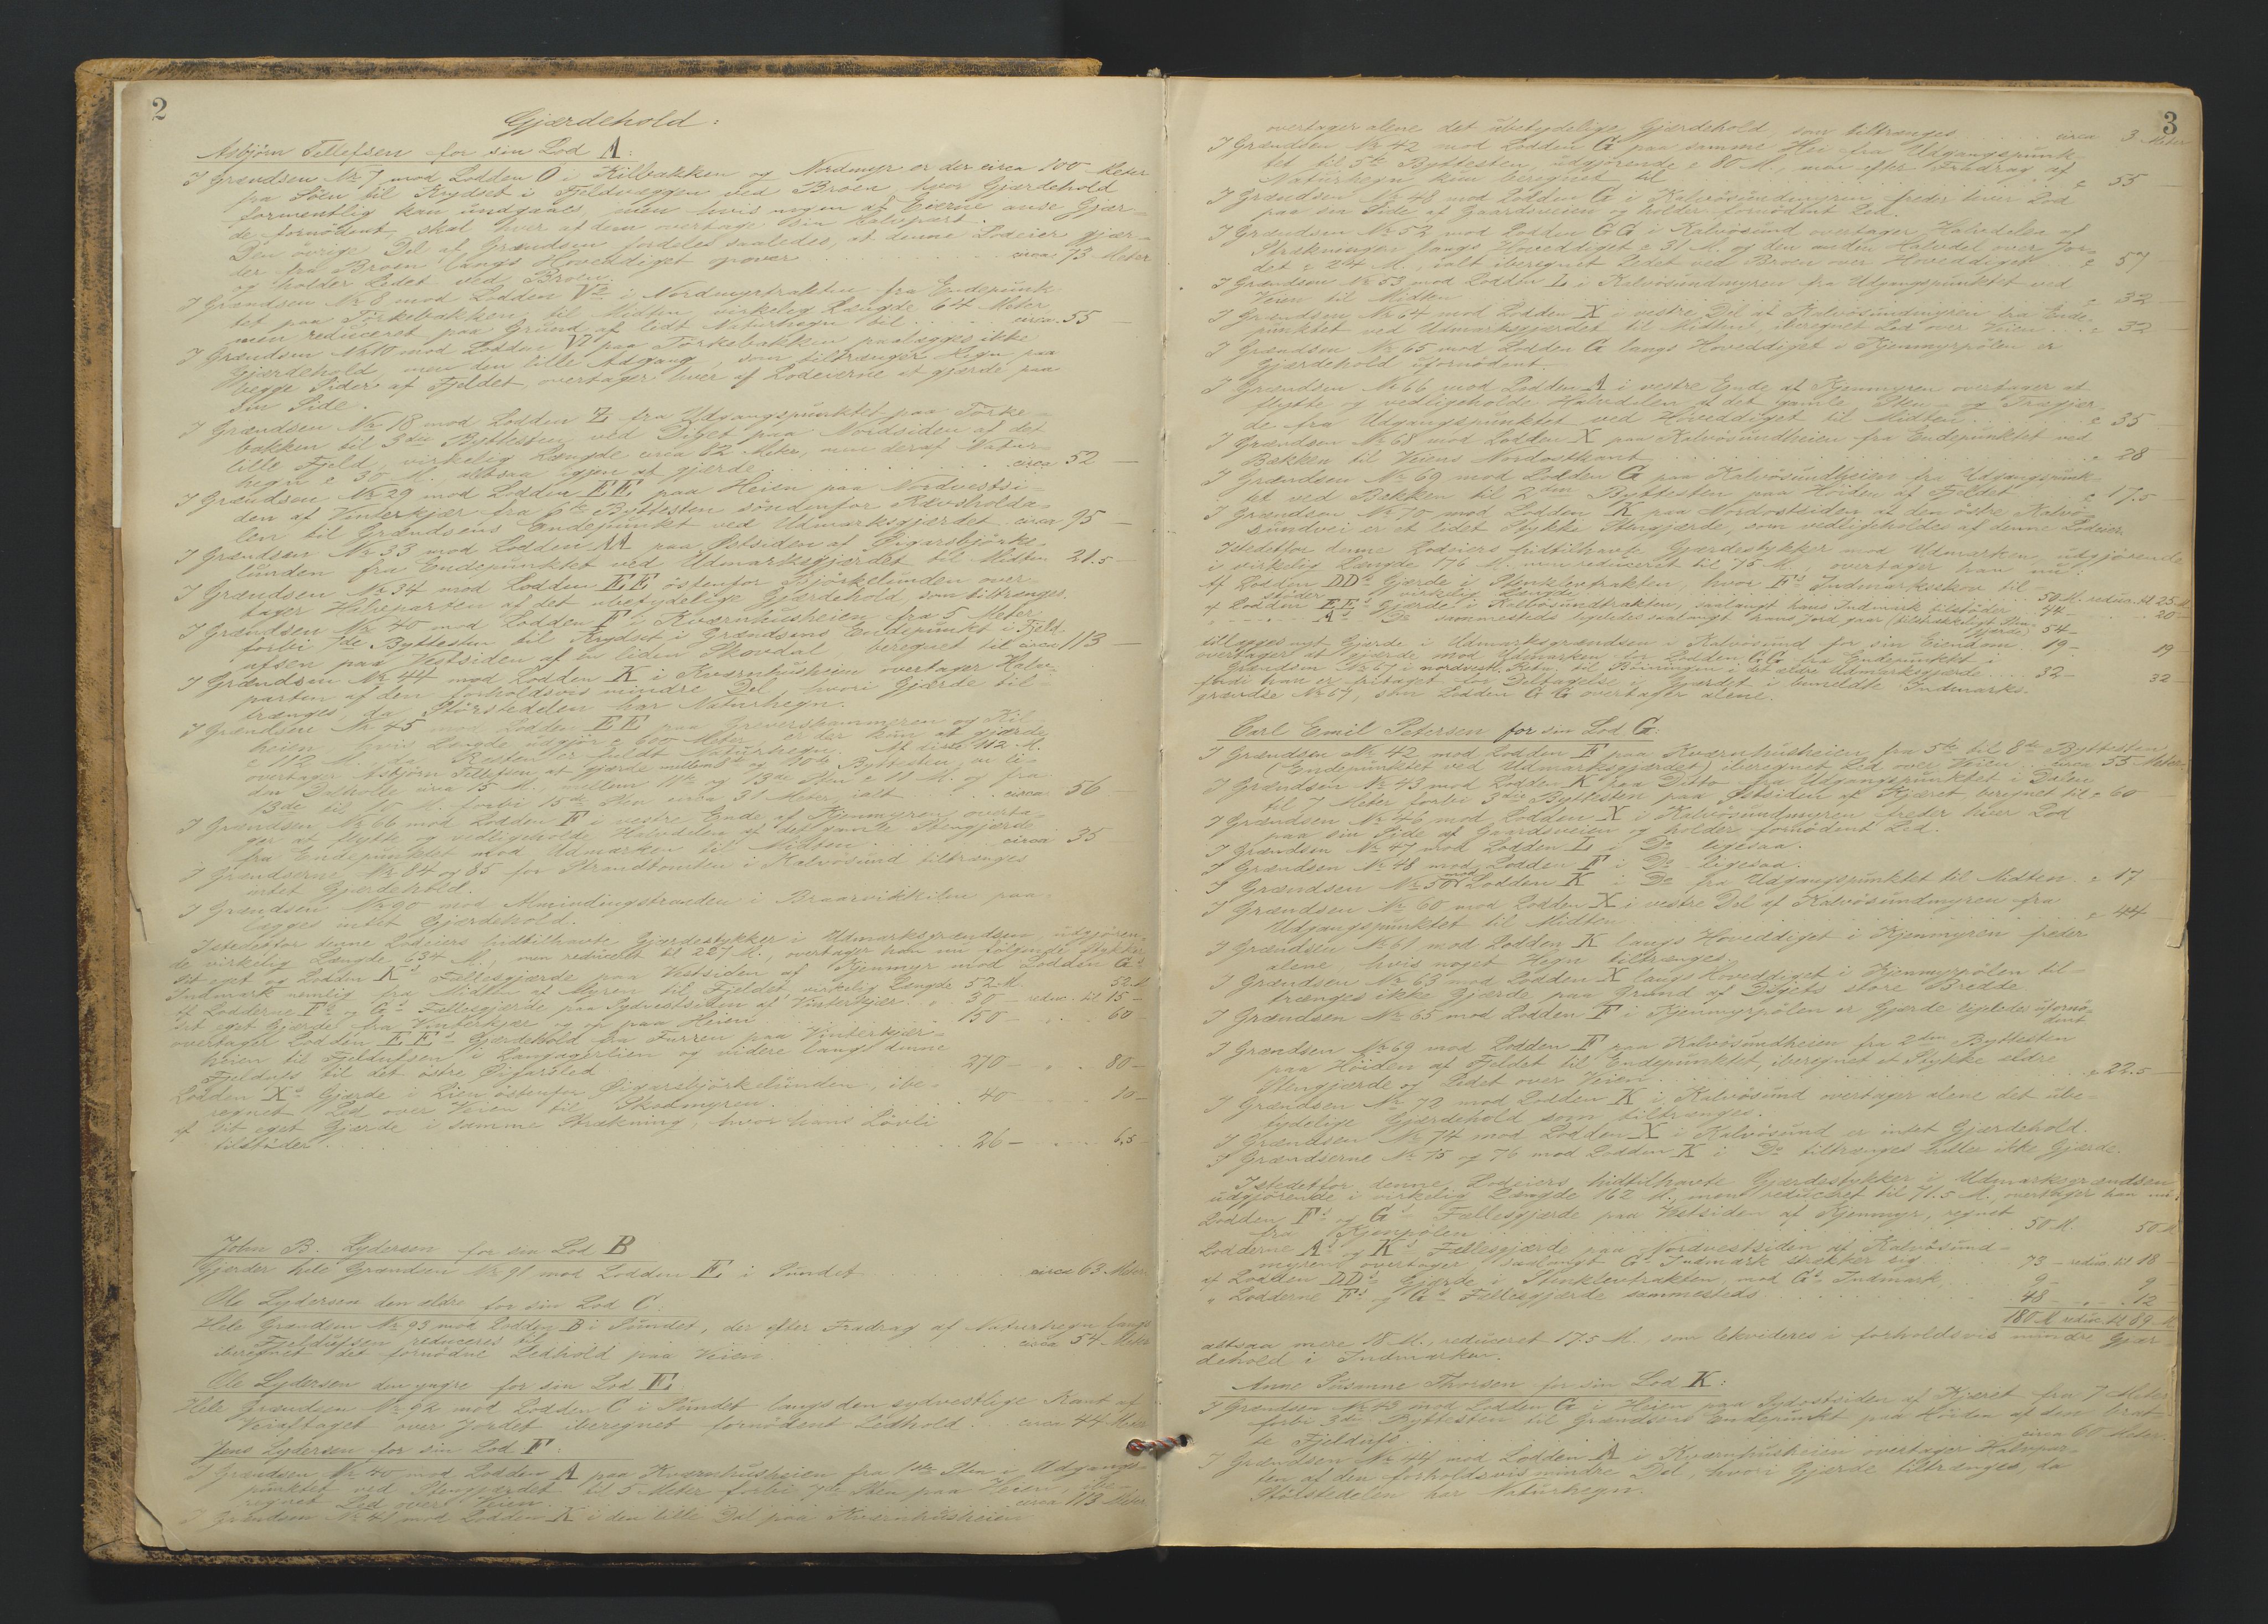 2
Gjærdehold:
Asbjörn Tellefsen for sin Lod A:
I Grændsen № 7 mod Lodden O i Kilbakken og Nordmyr er der circa 100 Meter
fra Söen til Krydset i Fjeldvæggen ved Broen, hvor Gjærdehold
formentlig kan undgaaes, men hvis nogen af Eierne anse Gjær-
de fornödent, skal hver af dem overtage sin Halvpart.
Den övrige Del af Grændsen fordeles saaledes, at denne Lodeier gjær-
der fra Broen langs Hoveddiget opover . . . circa 73 Meter
og holder Ledet ved Broen.
I Grændsen № 8 mod Lodden Va i Nordmyrtrakten fra Endepunk-
tet paa Törkebakken til Midten, virkelig Længde 64 Meter,
men reduceret paa Grund af lidt Naturhegn til . . . circa 55 —
I Grændsen № 10 mod Lodden V paa Törkebakken paalægges ikke
Gjærdehold, men den lille Adgang, som tiltrænger Hegn paa
begge Sider af Fjeldet, overtager hver af Lodeierne at gjærde paa
sin Side.
I Grændsen № 18 mod Lodden Z fra Udgangspunktet paa Törke-
bakken til 3die Byttesten ved Diget paa Nordsiden af det
lille Fjeld, virkelig Længde circa 82 Meter, men deraf Natur-
hegn c 30 M., altsaa igjen at gjærde . . . circa 52 —
I Grændsen № 29 mod Lodden EE paa Heien paa Nordvestsi-
den af Vinterkjær fra 6te Byttesten söndenfor Rævsholda-
len til Grændsens Endepunkt ved Udmarksgjærdet circa 95 —
I Grændsen № 33 mod Lodden AA paa Östsiden af Öigarsbjörke-
lunden fra Endepunktet ved Udmarksgjærdet til Midten 21.5 —
I Grændsen № 34 mod Lodden EE östenfor Björkelunden over-
tager Halvparten af det ubetydelige Gjærdehold, som tiltrænges.
I Grændsen № 40 mod Lodden F i Kværnhusheien fra 5 Meter
forbi 7de Byttesten til Krydset i Grændsens Endepunkt i Fjeld-
ufsen paa Vestsiden af en liden Skovdal, beregnet til circa 113 —
I Grændsen № 44 mod Lodden K i Kværnhusheien overtager Halv-
parten af den forholdsvis mindre Del, hvori Gjærde til-
trænges, da Störstedelen har Naturhegn.
I Grændsen № 45 mod Lodden EE paa Greverskammyren og Kil-
heien, hvis Længde udgjör c 600 Meter, er der kun at gjærde
c 112 M., da Resten er fuldt Naturhegn. Af disse 112 M.
overtager Asbjörn Tellefsen at gjærde mellem og 10de Byttesten, en li-
den Dalholte circa 15 M., mellem 11te og 13de Sten c 11 M. og fra
13de til M. forbi 15de Sten circa 31 Meter, ialt . . . circa 56 —
I Grændsen № 66 mod Lodden F i vestre Ende af Kjenmyren overta-
ger at flytte og vedligeholde Halvdelen af det gamle Stengjærde
fra Endepunktet mod Udmarken til Midten . . . circa 35 —
I Grændserne № 84 og 85 for Strandtomten i Kalvösund tiltrænges
intet Gjærdehold.
I Grændsen № 90 mod Almindingstranden i Braarvikkilen paa-
lægges intet Gjærdehold.
Istedetfor denne Lodeiers hidtilhavte Gjærdestykker i Udmarksgrændsen, udgjören-
de virkelig Længde 634 M., men reduceret til 227 M., overtager han nu fölgende Stykker:
Sit eget og Lodden Ks Fællesgjærde paa Vestsiden af Kjenmyr mod Lodden Gs
Indmark nemlig fra Midten af Myren til Fjeldet virkelig Længde 52 M. 52 M
Af Lodderne Fs og Gs Fællesgjærde paa Sydvestsiden af Vinterkjær . . 30 — reduc. til 15 —
Sit eget Gjærde fra Vinterkjær og op paa Heien . . . 150 — 60 —
overtager Lodden EEs Gjærdehold fra Furren paa Vinterkjær-
heien til Fjeldufsen i Langagerlien og videre langs denne
Fjeldufs til det östre Öigarsled . . . 270 — 80 —
Lodden Xs Gjærde i Lien östenfor Öigarsbjörkelunden, ibe-
regnet Led over Veien til Skodmyren . . . 40 10 —
af Sit eget Gjærde i samme Strækning, hvor hans Lövli
tilstöder . . . 26 — 6,5 —
John B. Lydersen for sin Lod B
Gjærder hele Grændsen № 91 mod Lodden E i Sundet . . . circa 63 Meter
Ole Lydersen den ældre for sin Lod C:
Hele Grændsen № 93 mod Lodden B i Sundet, der efter Fradrag af Naturhegn langs
Fjeldufsen reduceres til . . . circa 54 Meter
iberegnet det fornödne Ledhold paa Veien.
Ole Lydersen den yngre for sin Lod E
Hele Grændsen № 92 mod Lodden C i Sundet langs den sydvestlige Kant af
Veialtaget over Jordet iberegnet fornödent Ledhold . . circa 44 Meter
Jens Lydersen for sin Lod F:
I Grændsen № 40 mod Lodden A paa Kværnhusheien fra 1ste Sten i Udgangs-
punktet ved Stengjærdet til 5 Meter forbi 7de Sten paa Heien, ibe-
regnet Led over Veien . . . circa 113 Meter
I Grændsen № 41 mod Lodden K i den lille Dal paa Kværnhusheien
3
overtager alene det ubetydelige Gjærdehold, som tiltrænges . . . circa 3 Meter
I Grændsen № 42 mod Lodden G paa samme Hei fra Udgangspunk-
tet til 5te Byttesten, udgjörende c 80 M., men efter Fradrag af
Naturhegn kun beregnet til . . . c 55 —
I Grændsen № 48 mod Lodden G i Kalvösundmyren freder hver Lod
paa sin Side af Gaardsveien og holder fornödent Led.
I Grændsen № 52 mod Lodden GG i Kalvösund overtager Halvdelen af
Strækningen langs Hoveddiget c 31 M. og den anden Halvdel over Jor-
det c 26 M., ialt iberegnet Ledet ved Broen over Hoveddiget . . c 57 —
I Grændsen № 53 mod Lodden L i Kalvösundmyren fra Udgangspunktet ved
Veien til Midten . . . c 32 —
I Grændsen № 64 mod Lodden X i vestre Del af Kalvösundmyren fra Ende-
punktet ved Udmarksgjærdet til Midten, iberegnet Led over Veien . . c 32 —
I Grændsen № 65 mod Lodden G langs Hoveddiget i Kjenmyrpölen er
Gjærdehold ufornödent.
I Grændsen № 66 mod Lodden A i vestre Ende af Kjenmyren overtager at
flytte og vedligeholde Halvdelen af det gamle Sten- og Trægjær-
de fra Udgangspunktet ved Hoveddiget til Midten . . . c 35 —
I Grændsen № 68 mod Lodden X paa Kalvösundheien fra Endepunktet ved
Bækken til Veiens Nordostkant . . . c 28 —
I Grændsen № 69 mod Lodden G paa Kalvösundheien fra Udgangspunk-
tet ved Bækken til 2den Byttesten paa Höiden af Fjeldet . . . c 17.5 —
I Grændsen № 70 mod Lodden K paa Nordostsiden af den östre Kalvö-
sundvei er et lidet Stykke Stengjærde, som vedligeholdes af denne Lodeier.
Istedetfor denne Lodeiers hidtilhavte Gjærdestykker mod Udmarken, udgjörende
i virkelig Længde 176 M. men reduceret til 75 M., overtager han nu:
Af Lodden DDs Gjærde i Stenklevtrakten, hvor Fs Indmarksskov til-
stöder virkelig Længde . . . 50 M. reduc. til 25 M
af Lodden EEs Gjærde i Kalvösundtrakten, saalangt hans Indmark tilstöder 44 — 20 —
" — " As Do sammesteds ligeledes saalangt hans Jord gaar (tilstrækkeligt Sten-
gjærde) 54 —
tillægges nyt Gjærde i Udmarksgrændsen i Kalvösund for sin Eiendom 19 — 19
overtager at gjærde mod Udmarken for Lodden GG fra Endepunktet i
Grændsen № 67 i nordvestl. Retn. til Böiningen i det ældre Udmarksgjærde . . 32 — 32 —
fordi han er fritaget for Deltagelse i Gjærdet i bemeldte Indmarks-
grændse № 67, som Lodden GG overtager alene.
Carl Emil Petersen for sin Lod G:
I Grændsen № 42 mod Lodden F paa Kværnhusheien fra 5te til 8de Byttesten
(Endepunktet ved Udmarksgjærdet) iberegnet Led over Veien . . circa 55 Meter
I Grændsen № 43 mod Lodden K paa Ditto fra Udgangspunktet i Dalen
til 7 Meter forbi 3die Byttesten paa Östsiden af Kjæret beregnet til c 60 —
I Grændsen № 46 mod Lodden X i Kalvösundmyren freder hver Lod
paa sin Side af Gaardsveien og holder fornödent Led.
I Grændsen № 47 mod Lodden L i Do ligesaa.
I Grændsen № 48 mod Lodden F i Do ligesaa.
I Grændsen № 50 mod Lodden K i Do fra Udgangspunktet til Midten c 17 —
I Grændsen № 60 mod Lodden X i vestre Del af Kalvösundmyren fra
Udgangspunktet til Midten . . . c 44 —
I Grændsen № 61 mod Lodden K langs Hoveddiget i Kjenmyren freder
alene hvis noget Hegn tiltrænges.
I Grændsen № 63 mod Lodden X langs Hoveddiget i Kjenmyrpölen til-
trænges ikke Gjærde paa Grund af Digets store Bredde.
I Grændsen № 65 mod Lodden F i Kjenmyrpölen er Gjærde ligeledes ufornö-
dent
I Grændsen № 69 mod Lodden F paa Kalvösundheien fra 2den Byttesten
paa Höiden af Fjeldet til Endepunktet, iberegnet et Stykke ældre
Stengjærde og Ledet over Veien . . . c 22.5 —
I Grændsen № 72 mod Lodden K i Kalvösund overtager alene det ube-
tydelige Gjærdehold som tiltrænges.
I Grændsen № 74 mod Lodden X i Kalvösund er intet Gjærdehold.
I Grændserne № 75 og 76 mod Lodden K i Do tiltrænges heller ikke Gjærde.
Istedetfor denne Lodeiers hidtilhavte Gjærdestykker i Udmarksgrændsen,
udgjörende i virkelig Længde 162 M., men reduceret til 71.5 M., overtager han nu:
Lodden Fs og Gs Fællesgjærde paa Vestsiden af Kjenmyr, regnet
fra Kjenpölen . . . 50 M. 50 M
Lodderne As og Ks Fællesgjærde paa Nordvestsiden af Kalvösund-
myren overtager, saalangt Gs Indmark strækker sig . . . 73 — reduc. til 18 —
af Lodden DDs Gjærde i Stenklevtrakten, mod Gs Indmark . . . 9 — 9 —
" Lodderne Fs og Gs Fællesgjærde sammesteds . . . 48 — " 12 —
180 M. reduc. til 89 M
altsaa mere 18 M., reduceret 17.5 M. som lekvideres i forholdsvis mindre Gjær-
dehold i Indmarken.
Anne Susanne Thorsen for sin Lod K:
I Grændsen № 43 mod Lodden G i Heien paa Sydostsiden af Kjæret fra 7 Meter
forbi 3die Byttesten til Grændsens Endepunkt paa Höiden af den brat-
te Fjeldufs . . . circa 60 Meter.
I Grændsen № 44 mod Lodden A i Kværnhusheien overtager Halvpar-
ten af den forholdsvis mindre Del, hvori Gjærde tiltrænges, da
Störstedelen har Naturhegn.